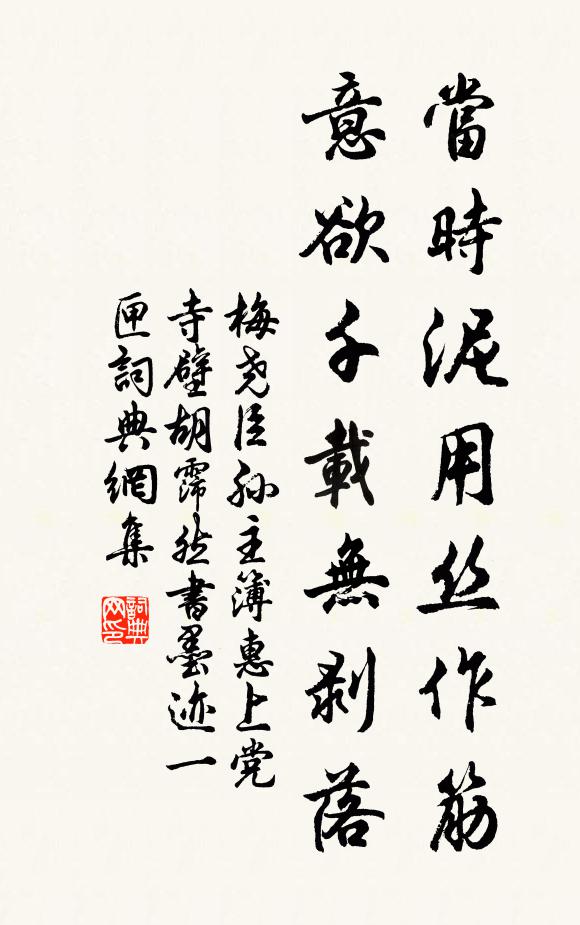 當時泥用丝作筋
意欲千載無剥落
梅尧臣孙主簿惠上党
寺壁胡霈然書墨迹一
匣詞典網集
詞典网印